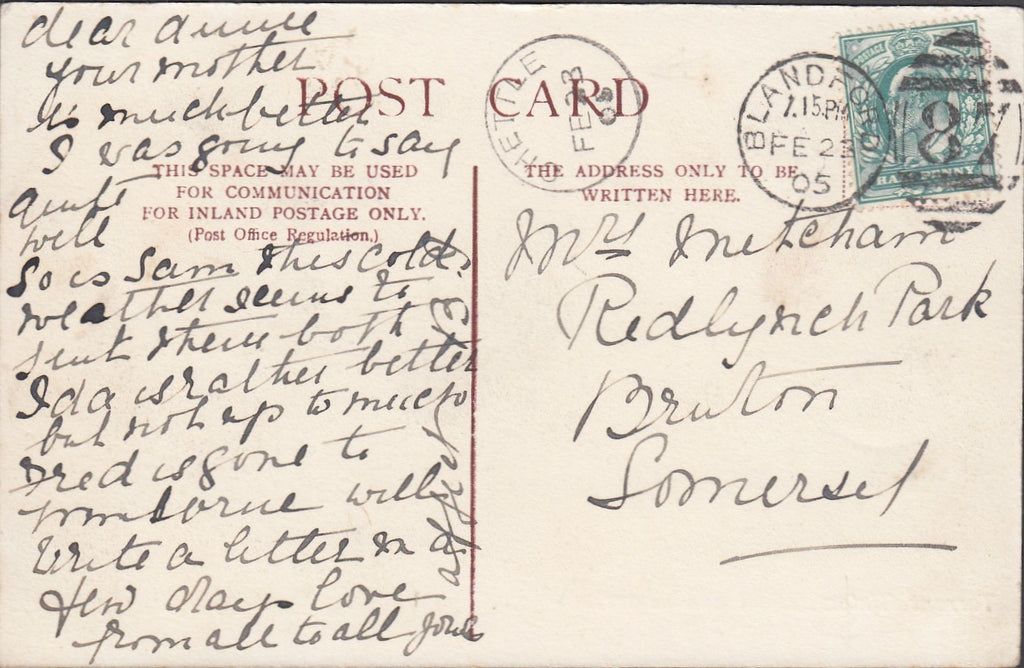 dear annie
your mother
is much better
I was going to say
quite
well
So is Sam this cold
weather seems to
suit them both
Ida is rather better
but not up to much
Fred is gone to
will
write a letter in a
few days love
from all to all yours
POST CARD
THIS SPACE MAY BE USED
FOR COMMUNICATION
FOR INLAND POSTAGE ONLY.
(Post Office Regulation.)
THE ADDRESS ONLY TO BE
WRITTEN HERE.
CHETTLE
FE 23
05
BLANDFORD
7.15PM
FE 23
05
POSTAGE
HALFPENNY
Mrs Metcham
Redlynch Park
Bruton
Somerset